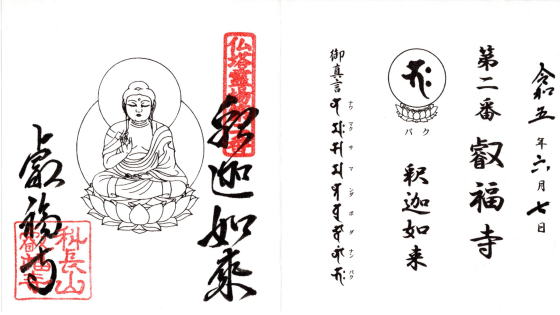 令和五年六月七日
第二番 叡福寺
バク
釈迦如来
御真言
ナウ マク サ マ ンダ ボ ダ ナン バク
釈迦如来
上 叡福寺
科長山
叡福寺